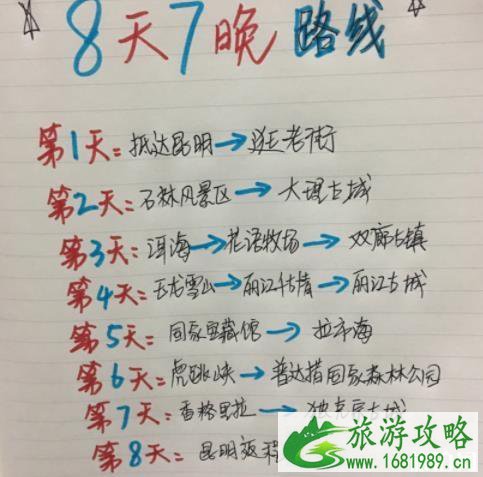 8天7晚路线
第1天:抵达昆明→逛老街
第2天:石林风景区→大理古城
第3天:洱海→花语牧场→双廊古镇
第4天:玉龙雪山→丽江千古情→丽江古城
第5天:回家宝藏馆→拉市海
第6天:虎跳峡→普达措国家森林公园
第7天:香格里拉→独克宗古城
第8天:昆明返程
旅游攻略
www.1681989.cn